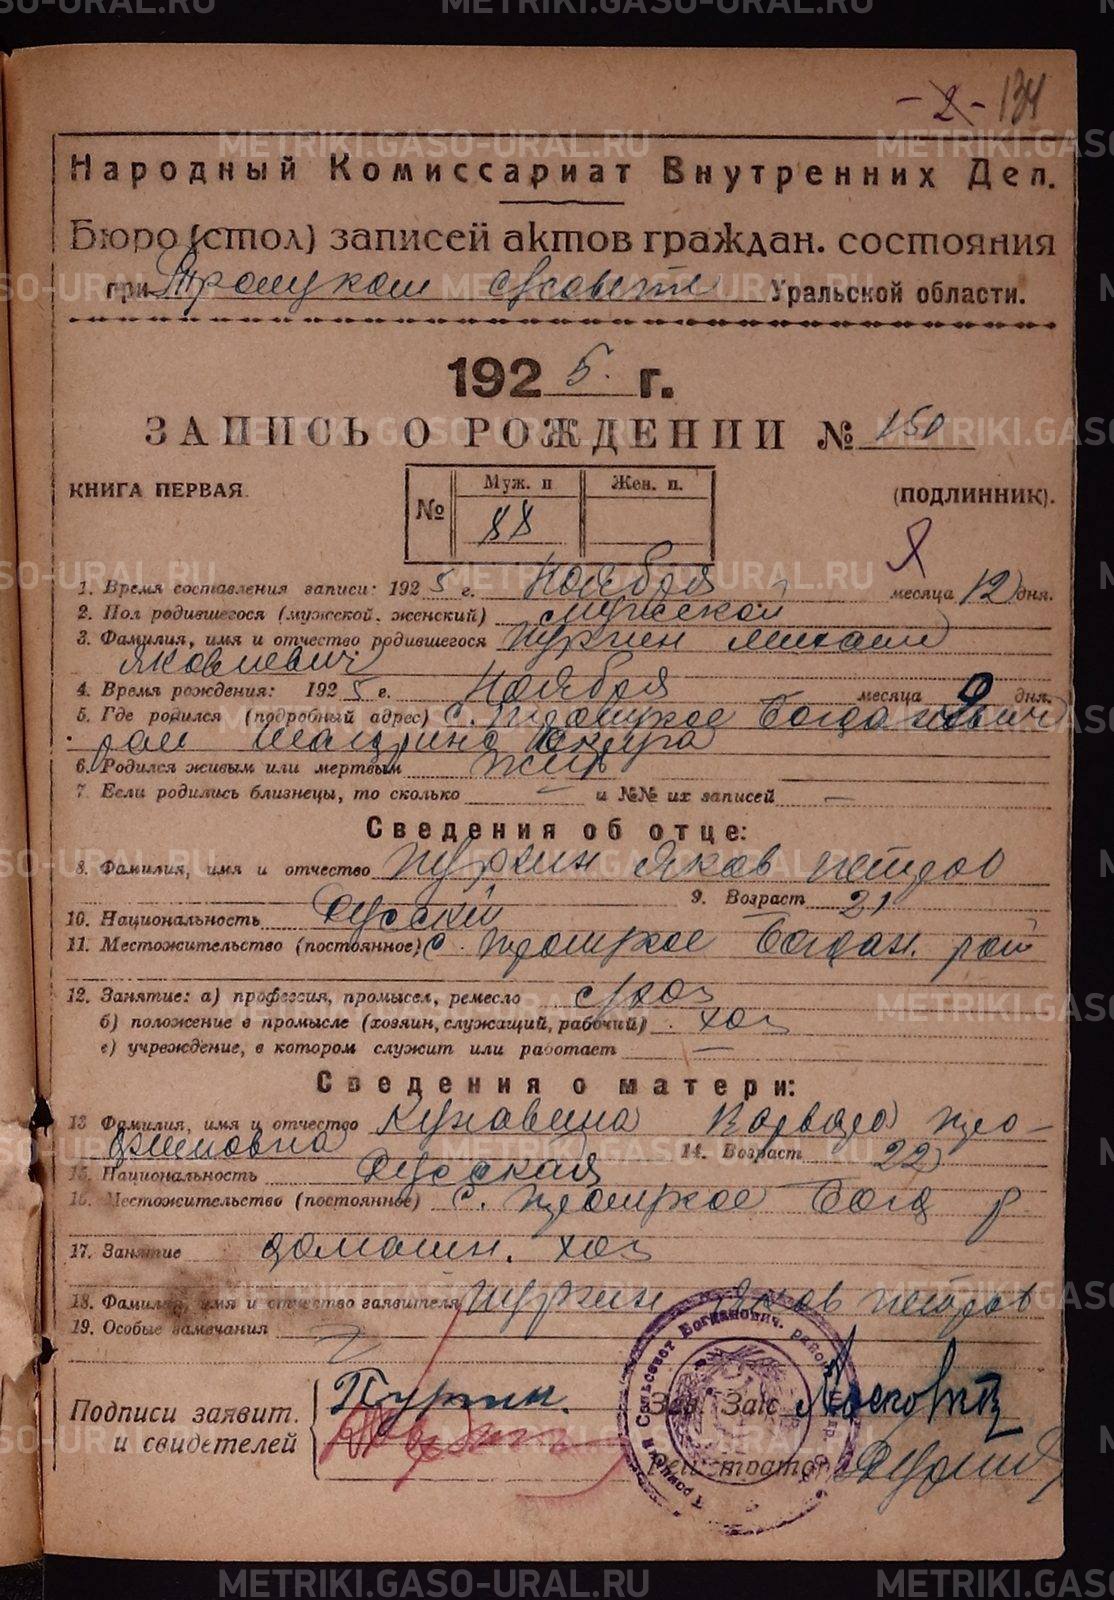 - 2 - 134
Народный Комиссариат Внутренних Дел.
Бюро (стол) записей актов граждан. состояния
при Троицком с/совете Уральской области.
192 5. г.
ЗАПИСЬ О РОЖДЕНИИ № 150
КНИГА ПЕРВАЯ. № Муж. п Жен. п. (ПОДЛИННИК).
88
1. Время составления записи: 192 5 г. Ноября месяца 12 дня.
2. Пол родившегося (мужской, женский) мужской
3. Фамилия, имя и отчество родившегося Пургин Михаил
Яковлевич
4. Время рождения: 192 5 г. Ноября месяца 9 дня.
5. Где родился (подробный адрес) с. Троицкое Богданович
рай Шадринс округа
6. Родился живым или мертвым жив
7. Если родились близнецы, то сколько — и №№ их записей —
Сведения об отце:
8. Фамилия, имя и отчество Пургин Яков Петров
9. Возраст 21
10. Национальность Русский
11. Местожительство (постоянное) с. Троицкое Богдан. рай
12. Занятие: а) профессия, промысел, ремесло с/хоз
б) положение в промысле (хозяин, служащий, рабочий) хоз
в) учреждение, в котором служит или работает —
Сведения о матери:
13 Фамилия, имя и отчество Кунавина Варвара Тро-
фимовна 14. Возраст 22
15. Национальность Русская
16. Местожительство (постоянное) с. Троицкое Богд р
17. Занятие домашн. хоз
18. Фамилия, имя и отчество заявителя Пургин Яков Петров
19. Особые замечания
Подписи заявит.
и свидетелей
Пургин.
Зав. Загс
Регистратор
Троицкий Сельсовет Богданович. района
METRIKI.GASO-URAL.RU